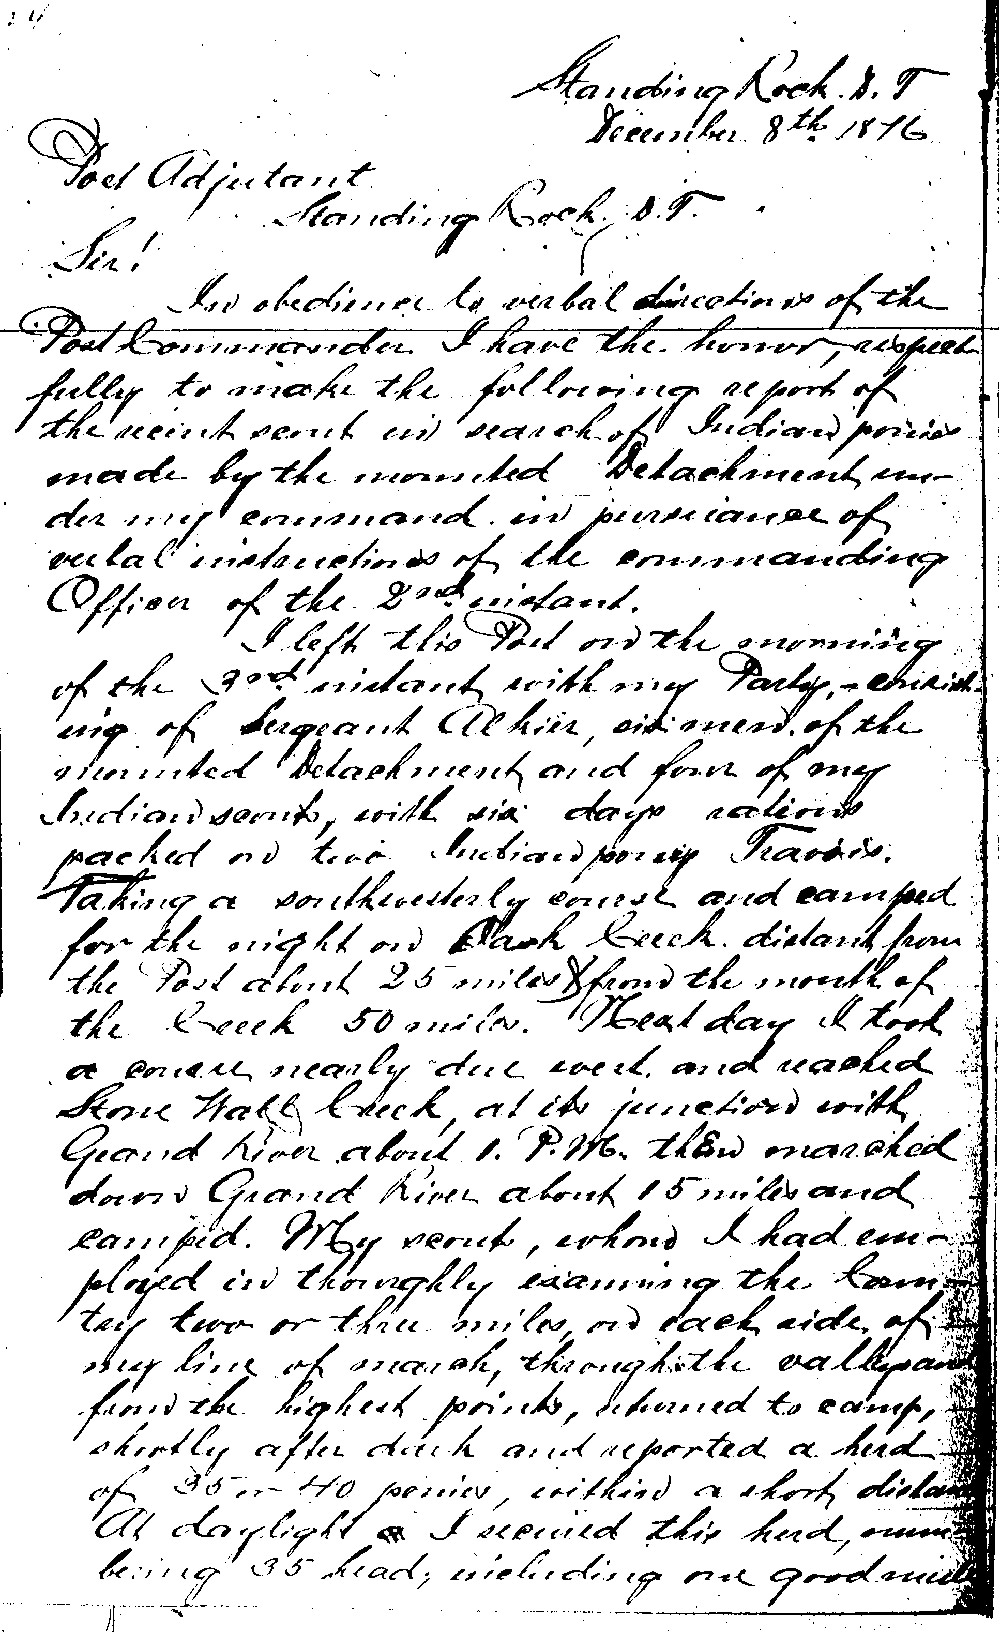 Standing Rock. D. T
December 8th 1876
Post Adjutant
Standing Rock, D. T.
Sir!
In obedience to verbal directions of the
Post Commander I have the honor, respect-
fully to make the following report of
the recent scout in search of Indian ponies
made by the mounted Detachment un-
der my command in pursuance of
verbal instructions of the commanding
Officer of the 2nd instant.
I left this Post on the morning
of the 3rd instant with my Party, - consist-
ing of Sergeant six men of the
mounted Detachment and four of my
Indian scouts, with six days rations
packed on two Indian pony Travois.
Taking a southwesterly course and camped
for the night on Oak Creek distant from
the Post about 25 miles & from the mouth of
the Creek 50 miles. Next day I took
a course nearly due west and reached
Stone Wall Creek, at its junction with
Grand River about 1. P. M. then marched
down Grand River about 15 miles and
camped. My scouts, whom I had em-
ployed in thoroughly examining the Coun-
try two or three miles, on each side of
my line of march, through the valleys and
from the highest points, returned to camp,
shortly after dark and reported a herd
of 35 or 40 ponies, within a short distance
At daylight I secured this herd, num-
bering 35 head, including one good mule